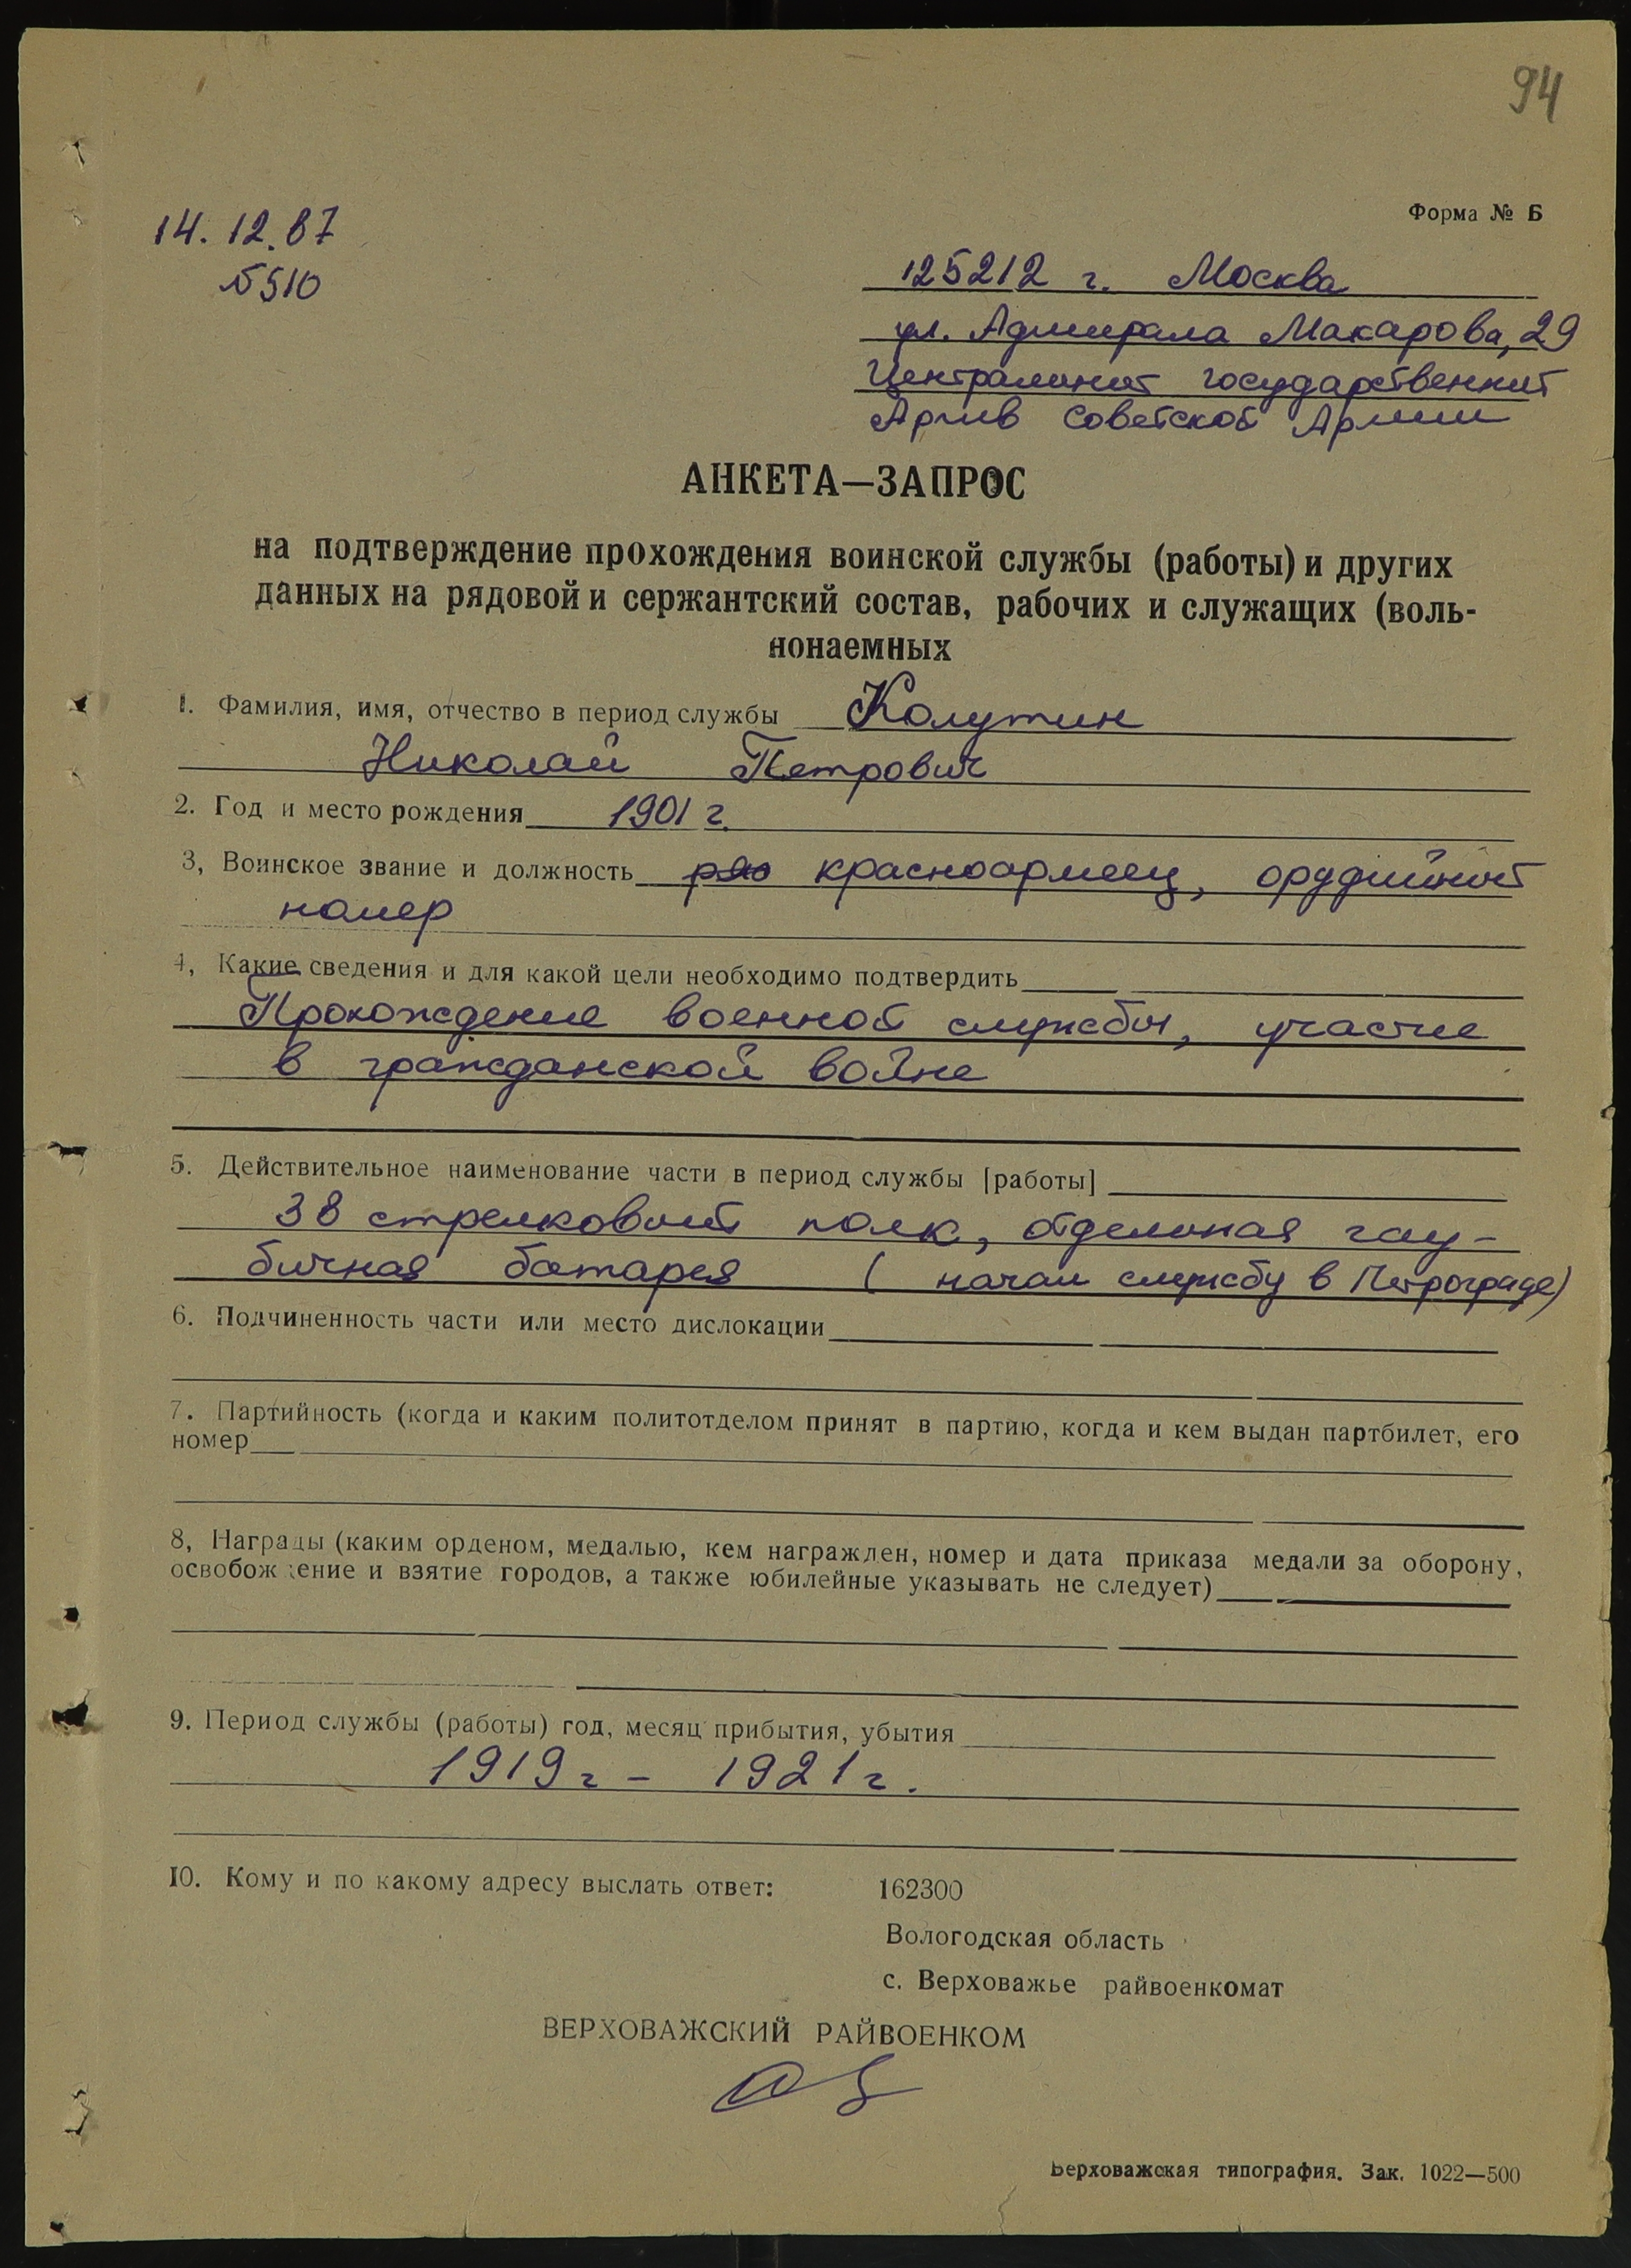 94
Форма № Б
14.12.87
№510
125212 г. Москва
ул. Адмирала Макарова, 29
Центральный государственный
Архив Советской Армии
АНКЕТА—ЗАПРОС
на подтверждение прохождения воинской службы (работы) и других
данных на рядовой и сержантский состав, рабочих и служащих (воль-
нонаемных
1. Фамилия, имя, отчество в период службы Колутин
Николай Петрович
2. Год и место рождения 1901 г.
3, Воинское звание и должность красноармеец, орудийный
номер
4, Какие сведения и для какой цели необходимо подтвердить
Прохождение военной службы, участие
в гражданской войне
5. Действительное наименование части в период службы [работы]
38 стрелковый полк, отдельная гау-
бичная батарея ( начал службу в Петрограде)
6. Подчиненность части или место дислокации
7. Партийность (когда и каким политотделом принят в партию, когда и кем выдан партбилет, его
номер
8, Награды (каким орденом, медалью, кем награжден, номер и дата приказа медали за оборону,
освобождение и взятие городов, а также юбилейные указывать не следует)
9. Период службы (работы) год, месяц прибытия, убытия
1919 г – 1921 г.
10. Кому и по какому адресу выслать ответ: 162300
Вологодская область
с. Верховажье райвоенкомат
ВЕРХОВАЖСКИЙ РАЙВОЕНКОМ
Верховажская типография. Зак. 1022—500